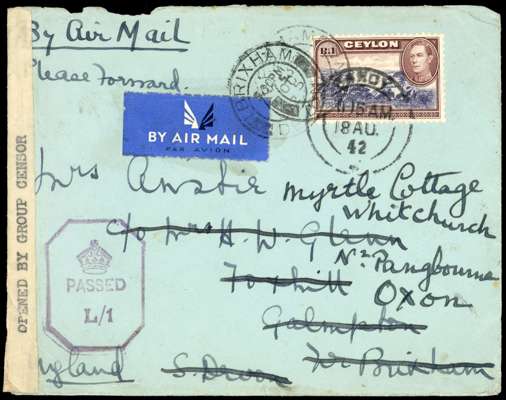 By Air Mail
Please Forward.
R.1
CEYLON
BRIXHAM
KANDY
10.15 AM
18 AU
42
BY AIR MAIL
PAR AVION
OPENED BY GROUP CENSOR
Mrs
c/o Mrs H. W. Glenn
Foxhill
Galmpton
Nr Brixham
S. Devon
England
Myrtle Cottage
Whitchurch
Nr. Pangbourne
Oxon
PASSED
L/1